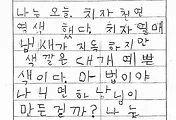 나는 오늘. 치자 천연
염색 했다. 치자 열매
냄새가 지독 하지만
색깔은 대개 예쁜
색이다. 마법이야
아니면 하난님이
만든걸까? 나는